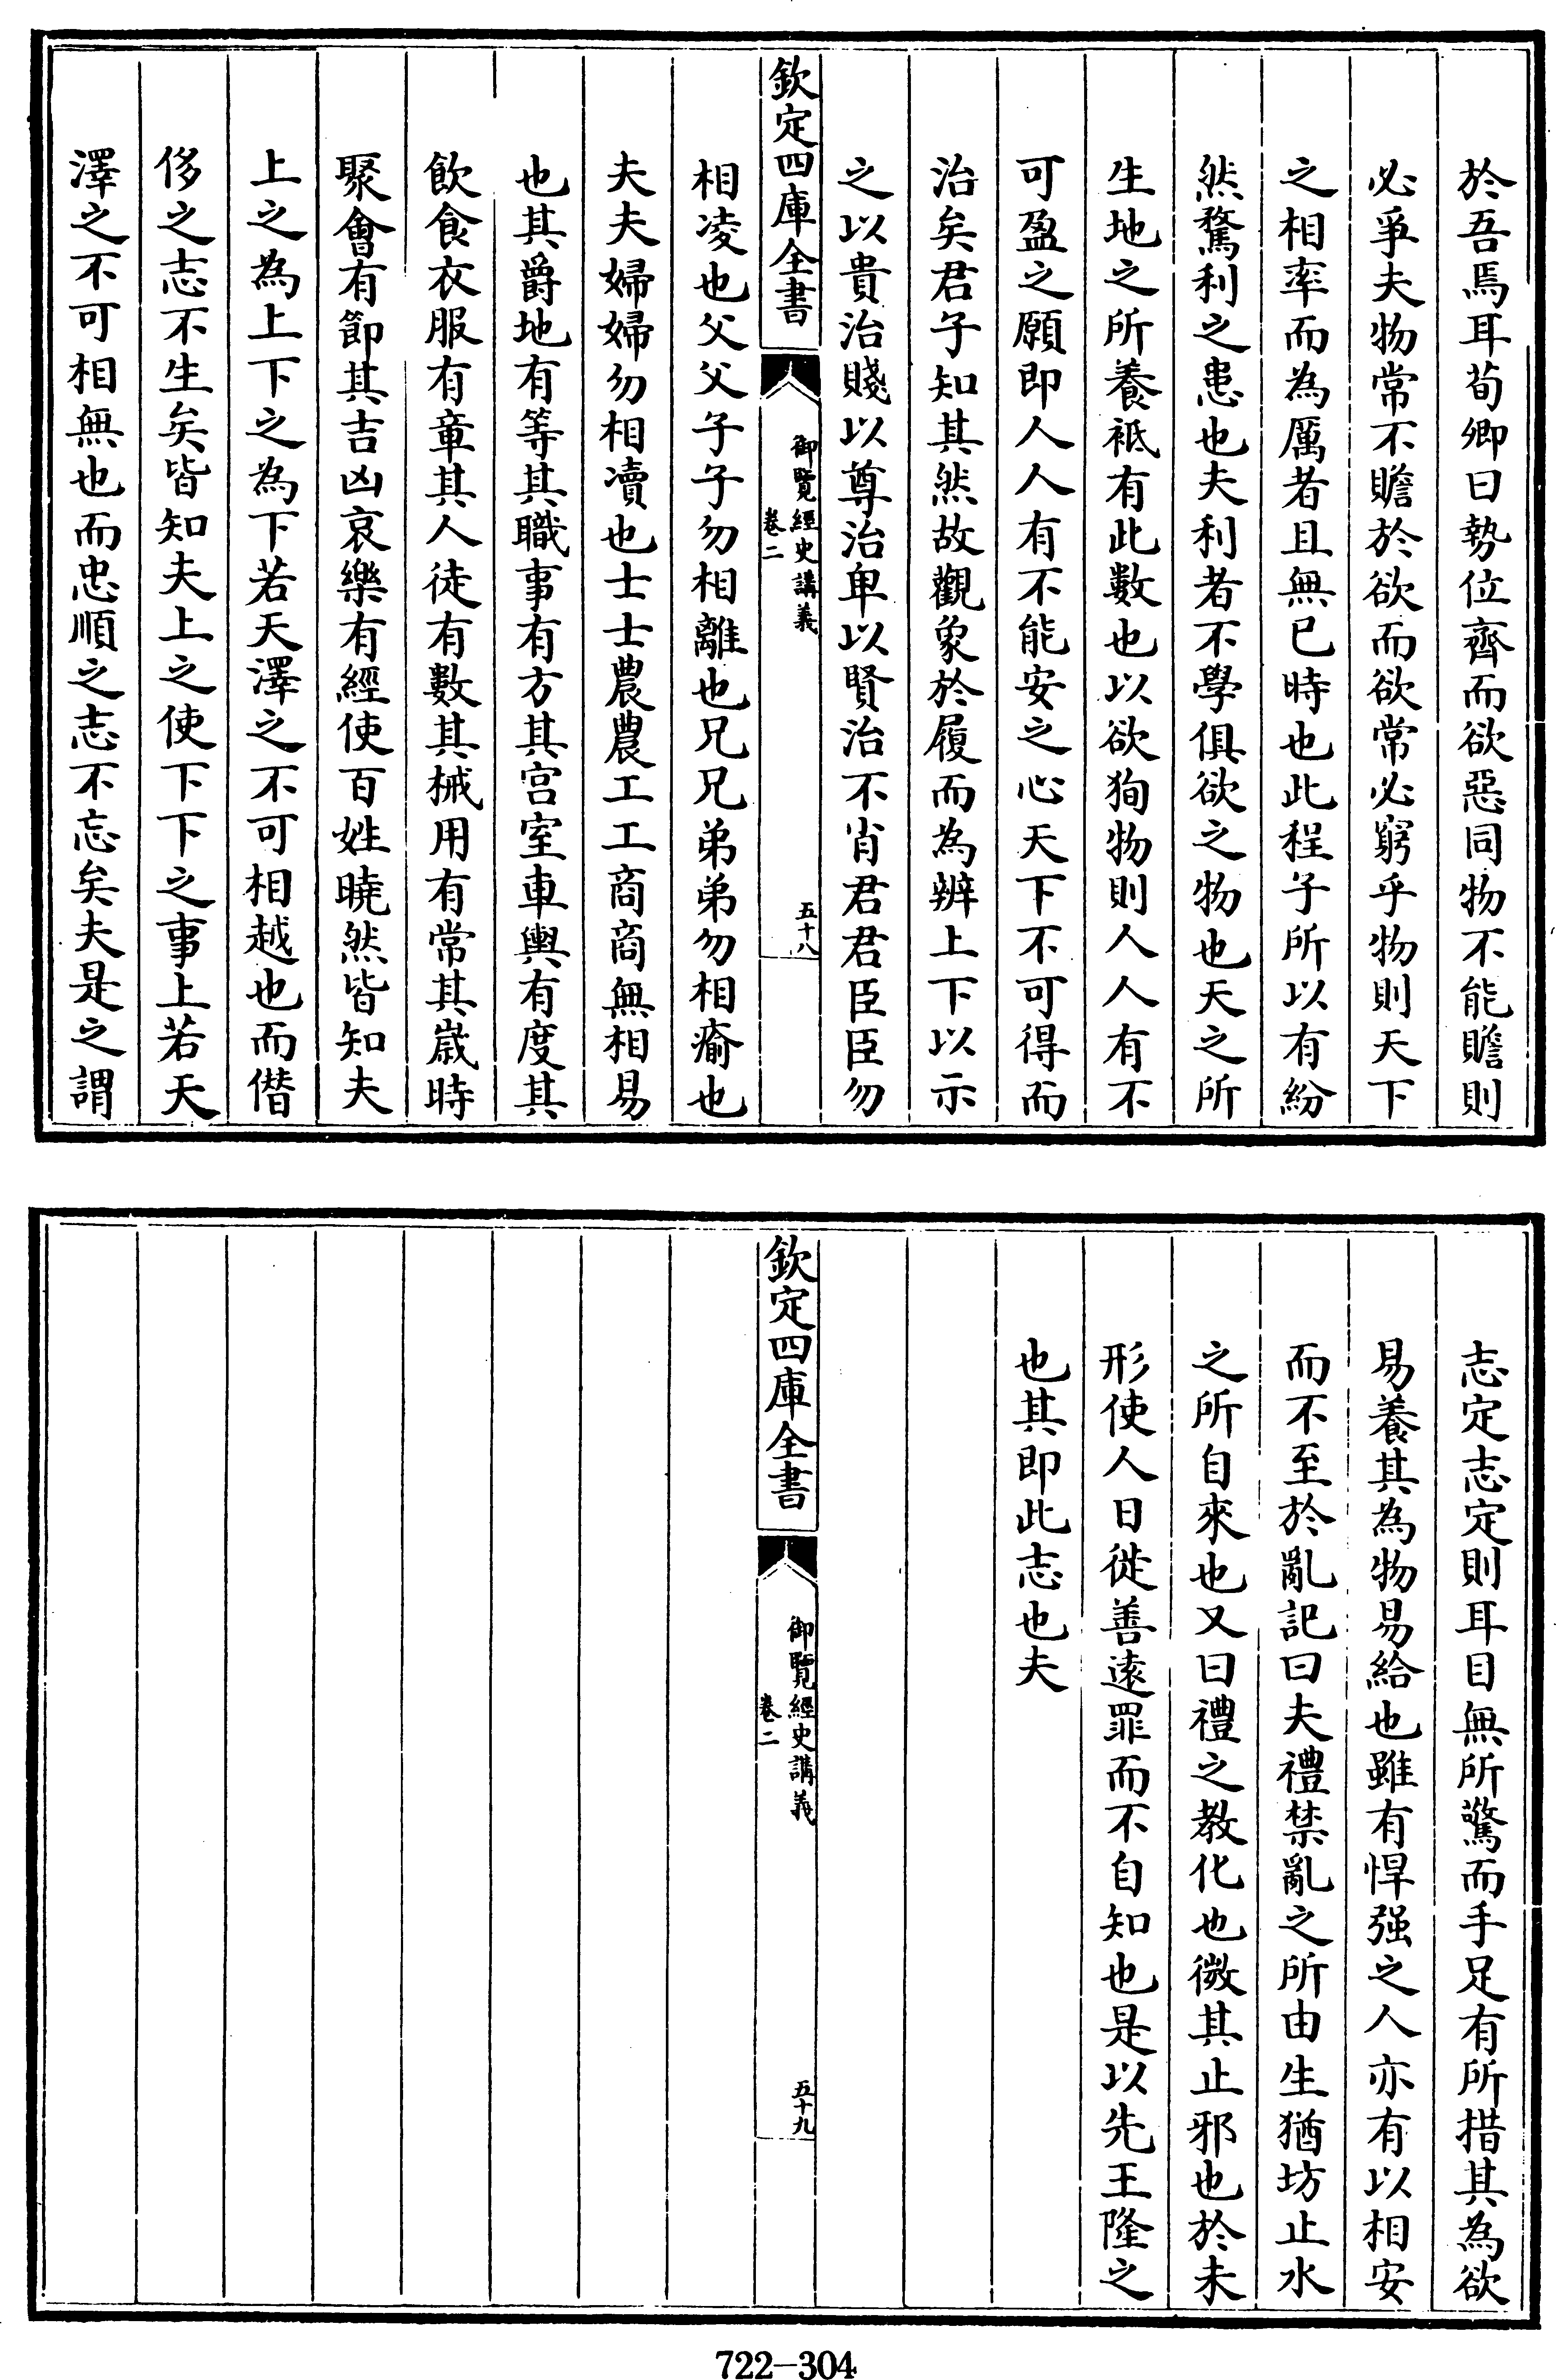 於吾焉耳荀卿曰勢位齊而欲惡同物不能贍則
必爭夫物常不贍於欲而欲常必窮乎物則天下
之相率而為厲者且無已時也此程子所以有紛
然騖利之患也夫利者不學俱欲之物也天之所
生地之所養祗有此數也以欲狥物則人人有不
可盈之願即人人有不能安之心天下不可得而
治矣君子知其然故觀象於履而為辨上下以示
之以貴治賤以尊治卑以賢治不肖君君臣臣勿
欽定四庫全書
御覽經史講義
卷二
五十八
相凌也父父子子勿相離也兄兄弟弟勿相瘉也
夫夫婦婦勿相凟也士士農農工工商商無相易
也其爵地有等其職事有方其宫室車輿有度其
飲食衣服有章其人徒有數其械用有常其嵗時
聚會有節其吉凶哀樂有經使百姓曉然皆知夫
上之為上下之為下若天澤之不可相越也而僭
侈之志不生矣皆知夫上之使下下之事上若天
澤之不可相無也而忠順之志不忘矣夫是之謂
志定志定則耳目無所驚而手足有所措其為欲
易養其為物易給也雖有悍强之人亦有以相安
而不至於亂記曰夫禮禁亂之所由生猶坊止水
之所自來也又曰禮之教化也微其止邪也於未
形使人日徙善逺罪而不自知也是以先王隆之
也其即此志也夫
欽定四庫全書
御覽經史講義
卷二
五十九
722-304